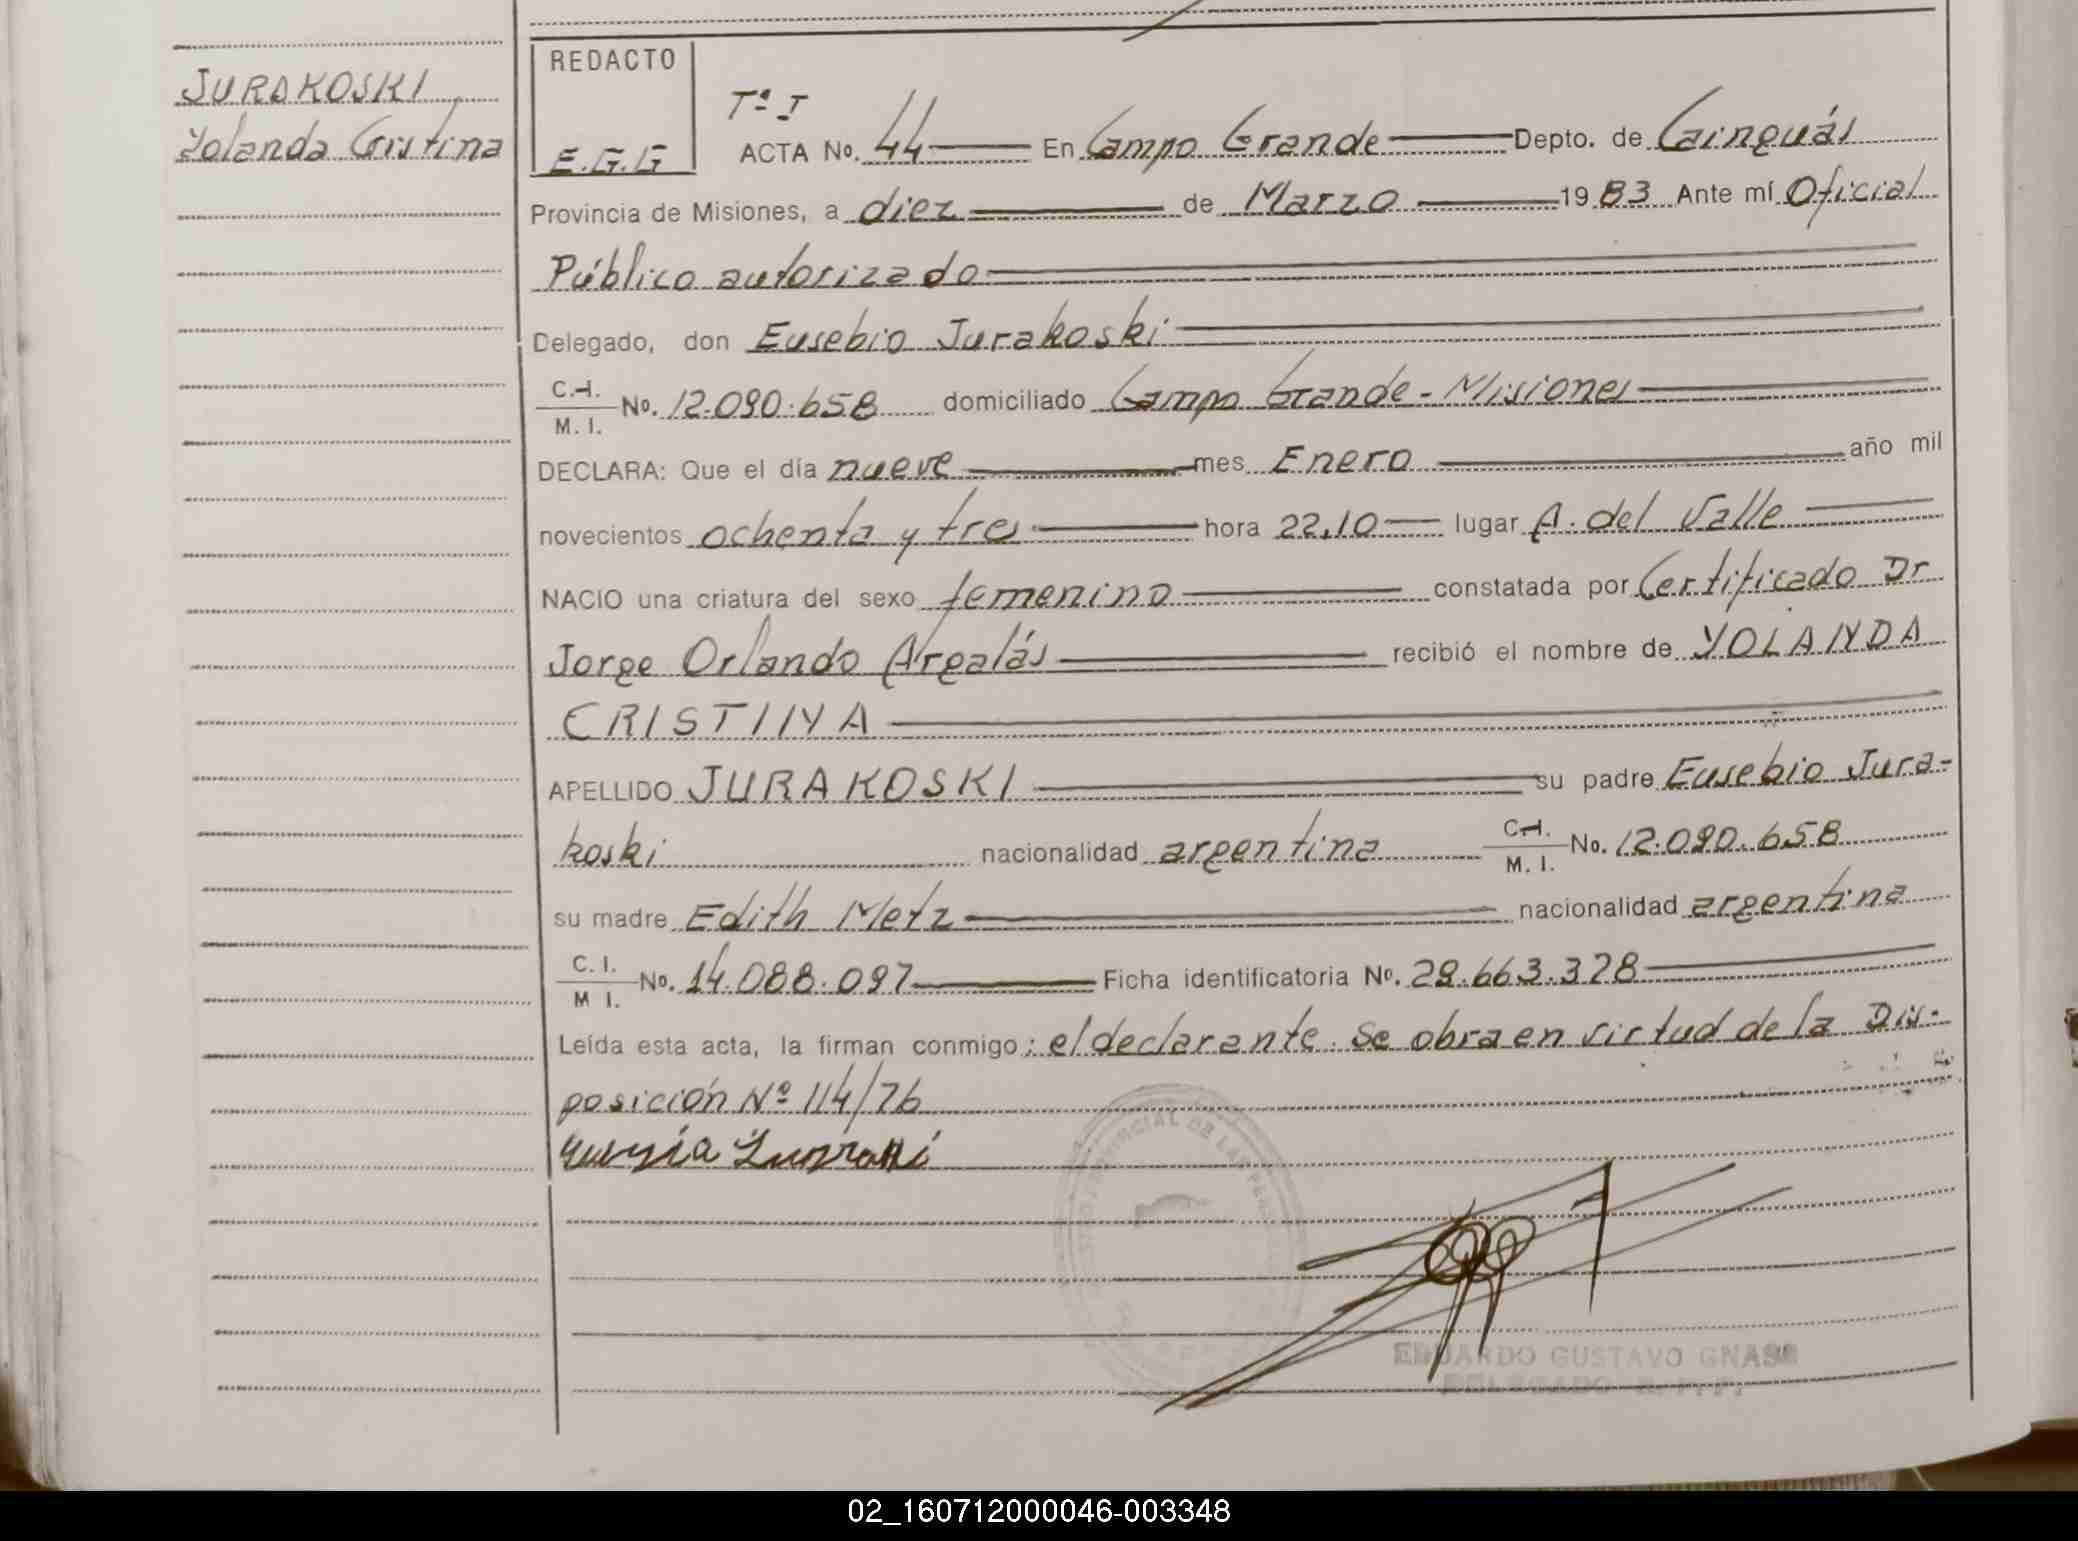 JURAKOSKI
Yolanda Cristina
REDACTO
E.G.G
Tº I
ACTA No. 44 En Campo Grande Depto. de Cainguás
Provincia de Misiones, a diez de Marzo 1983 Ante mí Oficial
Público autorizado
Delegado, don Eusebio Jurakoski
C.I. M.I. No. 12.090.658 domiciliado Campo Grande - Misiones
DECLARA: Que el día nueve mes Enero año mil
novecientos ochenta y tres hora 22,10 lugar A. del Valle
NACIO una criatura del sexo femenino constatada por Certificado Dr
Jorge Orlando Argalás recibió el nombre de YOLANDA
CRISTINA
APELLIDO JURAKOSKI su padre Eusebio Jura-
koski nacionalidad argentina C.I. M.I. No. 12.090.658
su madre Edith Metz nacionalidad argentina
C.I. M I. No. 14.088.097 Ficha identificatoria No. 29.663.328
Leída esta acta, la firman conmigo: el declarante. Se obra en virtud de la Dis-
posición Nº 114/76
EDUARDO GUSTAVO
DELEGADO
02_160712000046-003348